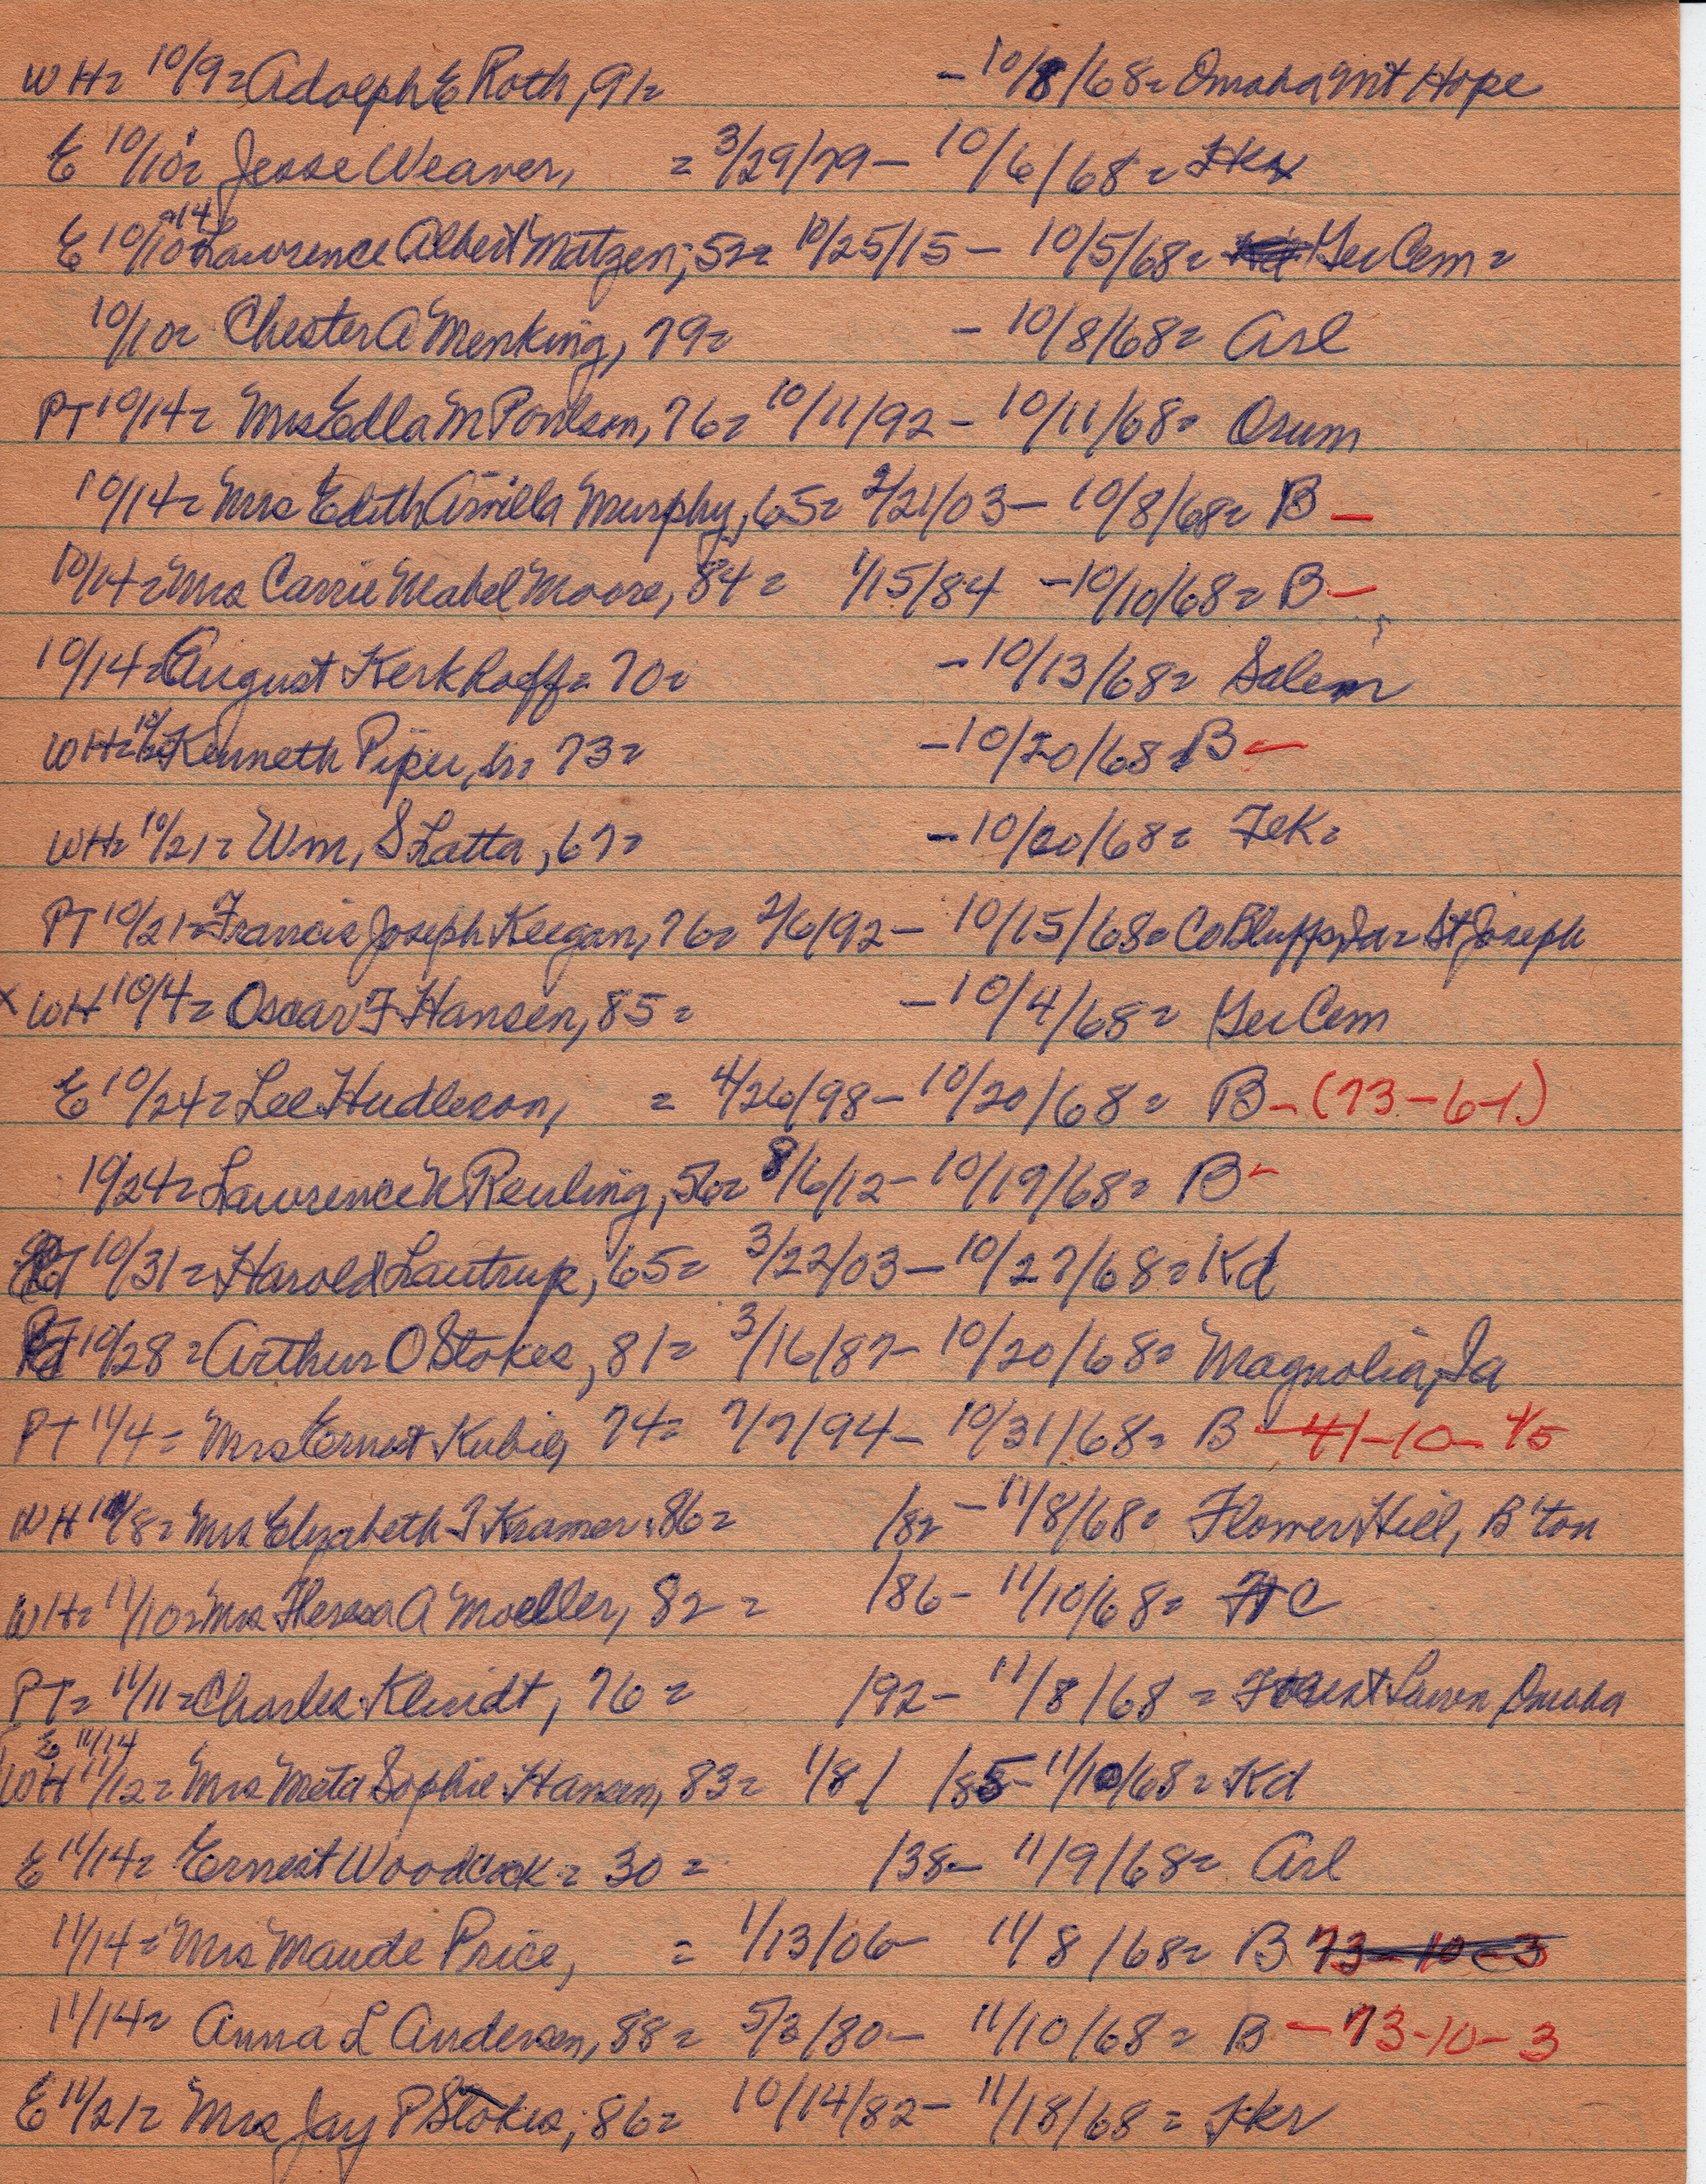 WH= 10/9= Adolph E Roth, 91= - 10/8/68= Omaha Mt Hope
E 10/10= Jesse Weaver, = 3/29/79 - 10/6/68=
E 10/10 =14= Lawrence Albert Matzen, 52= 10/25/15 - 10/5/68= Ger Cem =
10/10= Chester A Menking, 79= - 10/8/68= Arl
PT 10/14= Mrs Edla M Poulson, 76= 10/11/92 - 10/11/68= Orum
10/14= Mrs Edith Arvilla Murphy, 65= 2/21/03 - 10/8/68= B -
10/14= Mrs Carrie Mabel Moore, 84= 1/15/84 - 10/10/68= B -
10/14= August Kerkhoff= 70= - 10/13/68= Salem
WH= Kenneth Piper, Sr= 73= - 10/20/68= B -
WH= 10/21= Wm, S Latta, 67= - 10/20/68= Tek=
PT 10/21= Francis Joseph Keegan, 76= 2/6/92 - 10/15/68= Co Bluffs, Ia= St Joseph
x WH 10/4= Oscar F Hansen, 85= - 10/4/68= Ger Cem
E 10/24= Lee Hudleson, = 4/26/98 - 10/20/68= B - (73-6-1)
10/24= Lawrence N Reuling, 56= 8/6/12 - 10/19/68= B -
PT 10/31= Harold Lautrup, 65= 3/22/03 - 10/27/68= Kd
PT 10/28= Arthur O Stokes, 81= 3/16/87 - 10/20/68= Magnolia, Ia
PT 11/4= Mrs Ernest Kubie, 74= 7/7/94 - 10/31/68= B - 41-10-4/5
WH 11/8= Mrs Elizabeth J Kramer, 86= /82 - 11/8/68= Flower Hill, B'ton
WH= 11/10= Mrs Theresa A Moeller, 82= /86 - 11/10/68= HC
PT= 11/11= Charles Klindt, 76= /92 - 11/8/68= Forest Lawn Omaha
E 11/14
WH 11/12= Mrs Meta Sophie Hansen, 83= 1/8/ /85 - 11/10/68= Kd
E 11/14= Ernest Woodcock= 30= /38 - 11/9/68= Arl
11/14= Mrs Maude Price, = 1/13/06 - 11/8/68= B 73-10-3
11/14= Anna L Andersen, 88= 5/3/80 - 11/10/68= B - 73-10-3
E 11/21= Mrs Jay P Stokes, 86= 10/14/82 - 11/18/68=